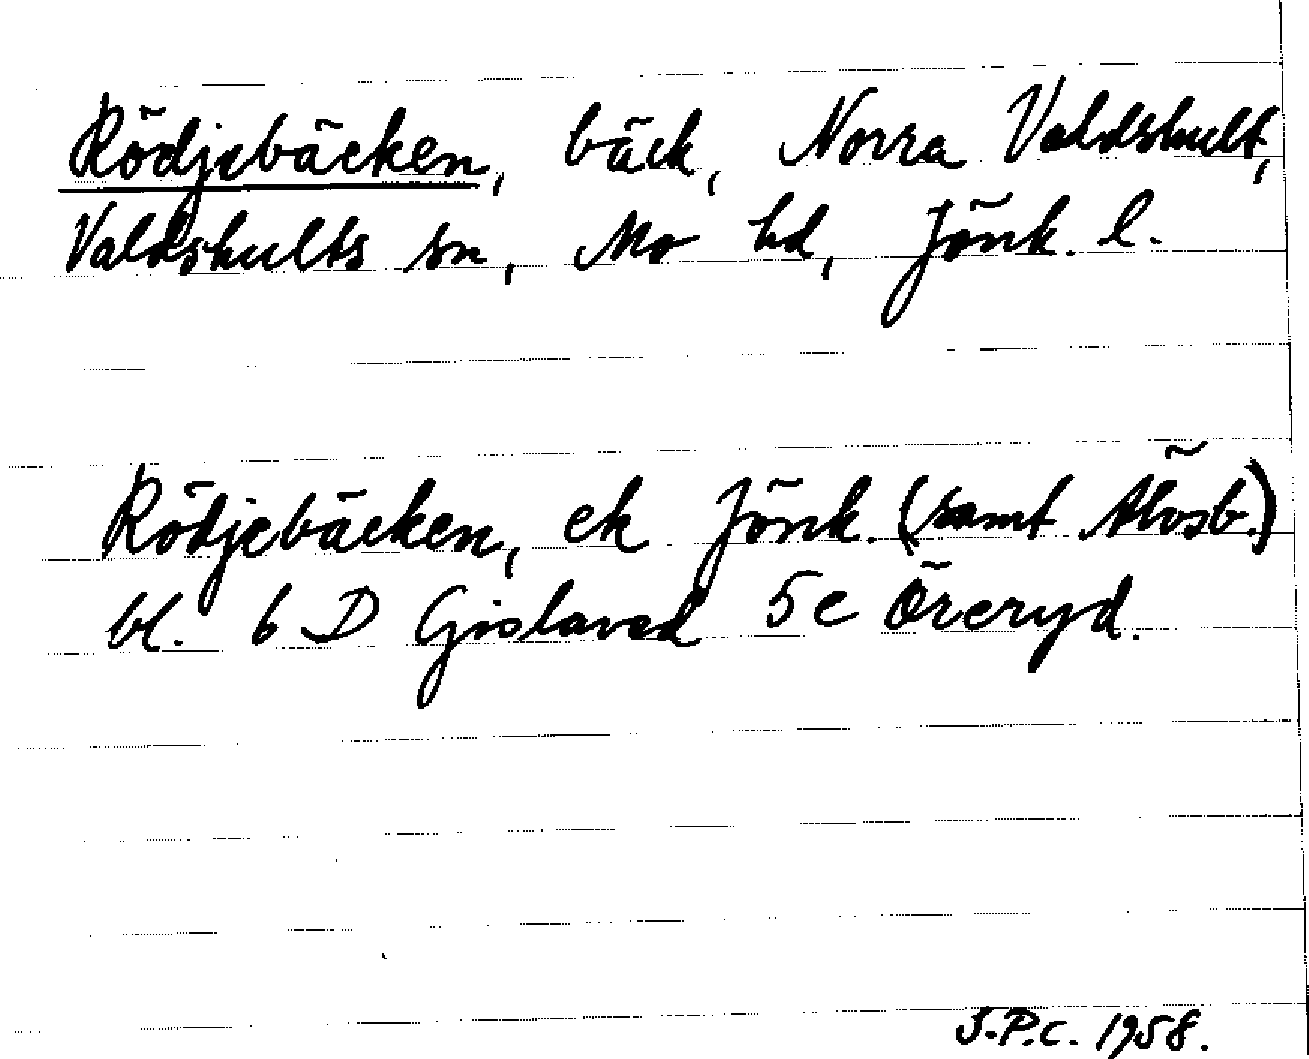 Rödjebäcken, bäck, Norra Valdshult,
Valdshults sn, Mo hd, Jönk. l.
Rödjebäcken, ek Jönk. (samt Älvsb.)
bl. 6 D Gislaved 5e Öreryd.
J.P.C. 1958.